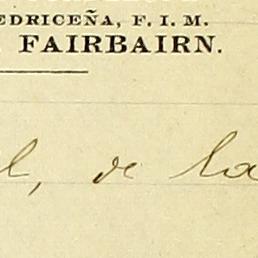 EDRICEÑA, F. I. M.
FAIRBAIRN.
l, de la